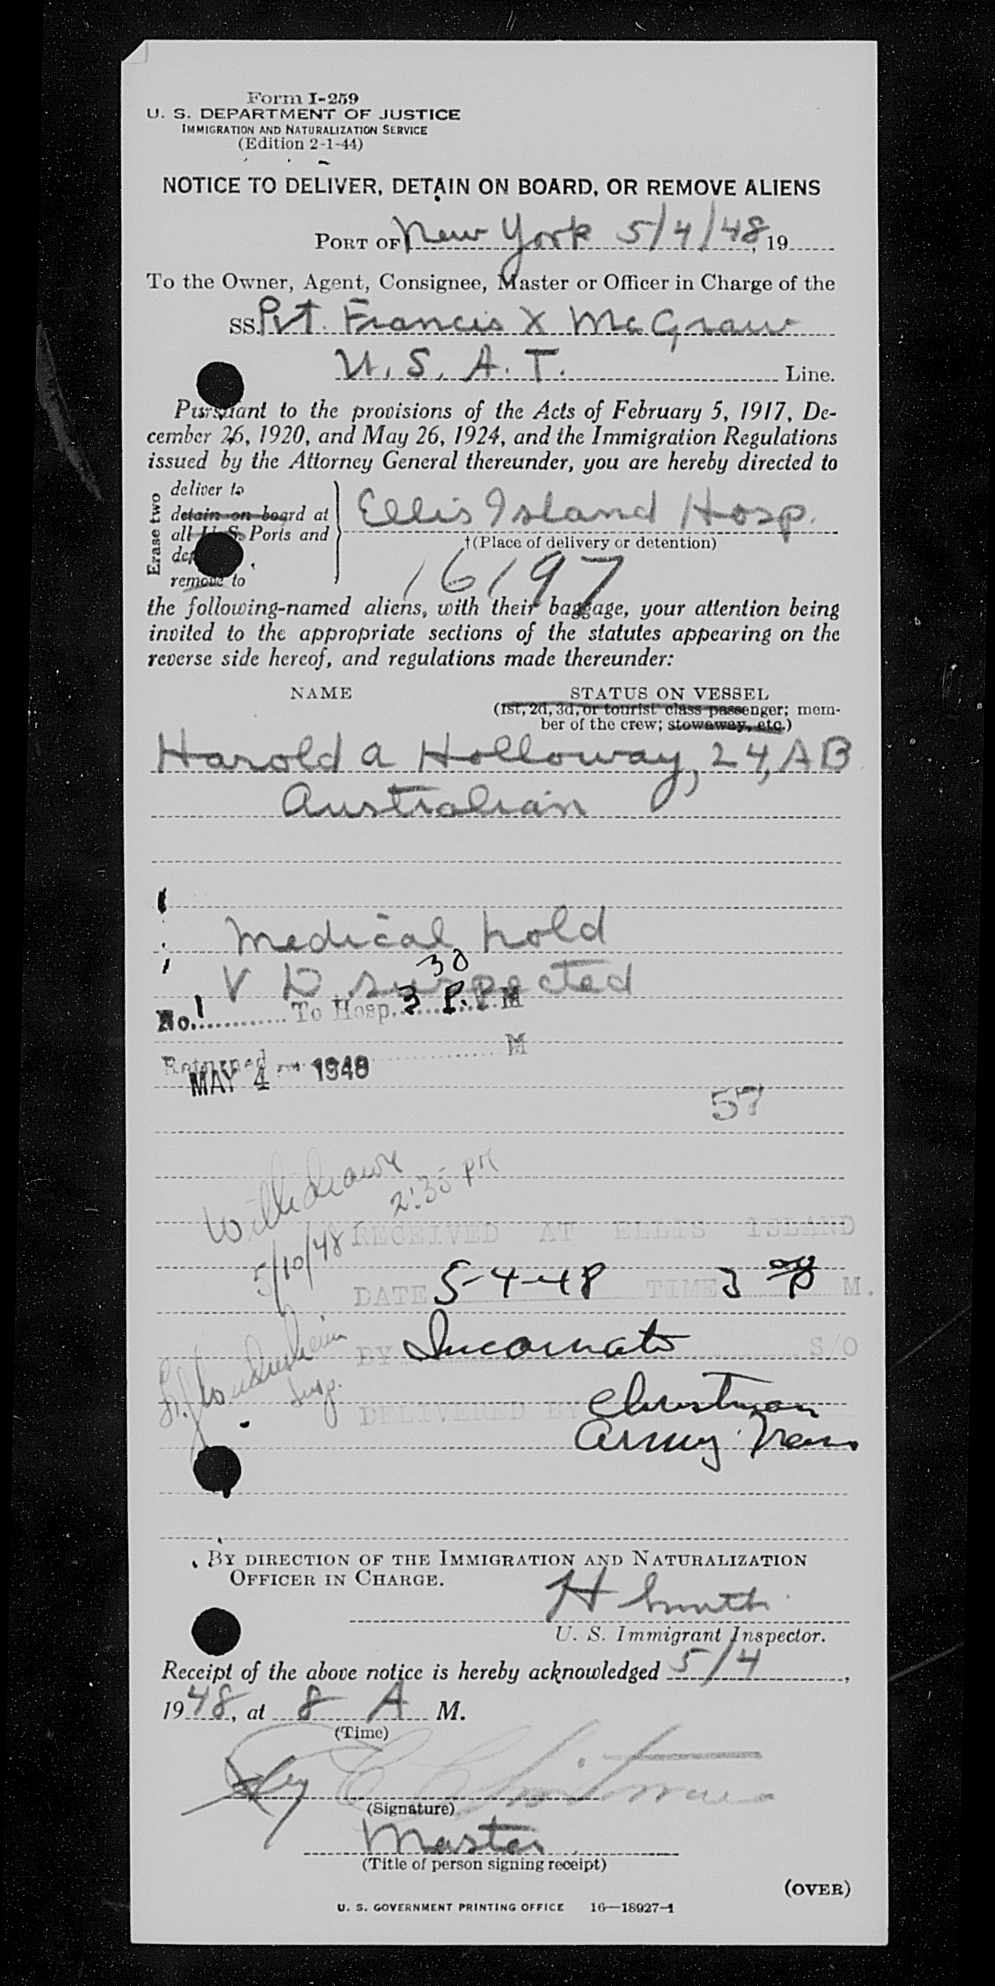 Form I-259
U. S. DEPARTMENT OF JUSTICE
IMMIGRATION AND NATURALIZATION SERVICE
(Edition 2-1-44)
NOTICE TO DELIVER, DETAIN ON BOARD, OR REMOVE ALIENS
PORT OF New York 5/4/48, 19
To the Owner, Agent, Consignee, Master or Officer in Charge of the
SS. Pvt. Francis X McGraw
U. S. A. T. Line.
Pursuant to the provisions of the Acts of February 5, 1917, De-
cember 26, 1920, and May 26, 1924, and the Immigration Regulations
issued by the Attorney General thereunder, you are hereby directed to
Erase two
deliver to
detain on board at
all U. S. Ports and
remove to
Ellis Island Hosp.
†(Place of delivery or detention)
16197
the following-named aliens, with their baggage, your attention being
invited to the appropriate sections of the statutes appearing on the
reverse side hereof, and regulations made thereunder:
NAME STATUS ON VESSEL
(1st, 2d, 3d, or tourist class passenger; mem-
ber of the crew; stowaway, etc.)
Harold A Holloway, 24, AB
Australian
Medical hold
V D suspected
No. 1 To Hosp. 3 30 P. P M
Returned M
MAY 4 - 1948
57
Withdrawn
2:35 PM
5/10/48
RECEIVED AT ELLIS ISLAND
DATE 5-4-48 TIME 3 P M.
BY Incornato S/O
Insp.
DELIVERED BY Christman
Army Trans
BY DIRECTION OF THE IMMIGRATION AND NATURALIZATION
OFFICER IN CHARGE.
H Smith
U. S. Immigrant Inspector.
Receipt of the above notice is hereby acknowledged 5/4,
1948, at 8 A M.
(Time)
(Signature)
Master
(Title of person signing receipt)
(OVER)
U. S. GOVERNMENT PRINTING OFFICE 16—18927-1